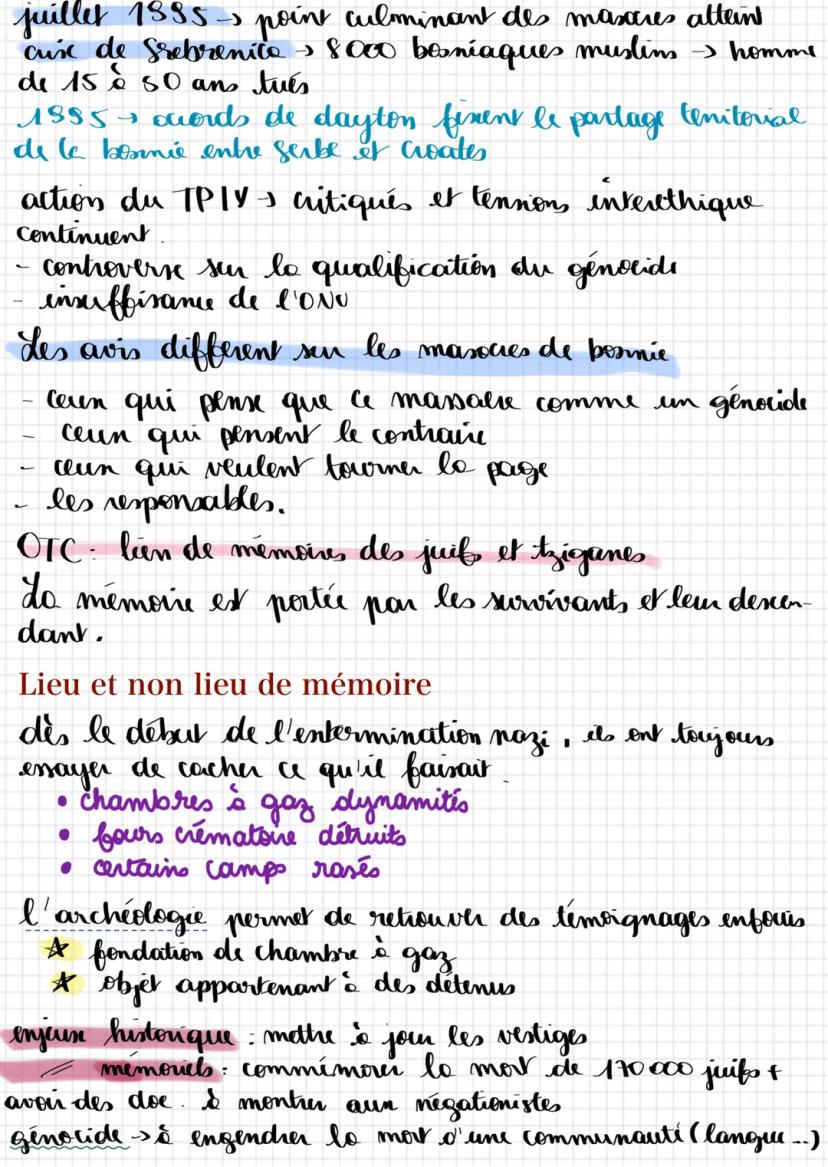 juillet 1995 → point culminant des masacres atteint
crise de Srebrenica → 8000 bosniaques muslims → homme
de 15 à 60 ans tués
1995 → acords de dayton fixent le partage territorial
de la bosnie entre serbe et Croates
action du TPIY → critiqués et tensions interethique
continuent.
- controverse sur la qualification du génocide
- insuffisance de l'ONU
Les avis diffèrent sur les masacres de bosnie
- ceux qui pense que ce massacre comme un génocide
- ceux qui pensent le contraire
- ceux qui veulent tourner la page
- les responsables.
OTC : lieu de mémoires des juifs et tziganes
La mémoire est portée par les survivants et leur descen-
dant.
Lieu et non lieu de mémoire
dès le début de l'extermination nazi, ils ont toujours
essayer de cacher ce qu'il faisait.
• chambres à gaz dynamités
• fours crématoire détruits
• certains camps rasés
l'archéologie permet de retrouver des témoignages enfouis
☆ fondation de chambre à gaz
☆ objet appartenant à des détenus
enjeux historique : mettre à jour les vestiges
〃 mémoriels : commémorer la mort de 170 000 juifs +
avoir des doc. à montrer aux négationistes
génocide → à engendrer la mort d'une communauté (langue ...)